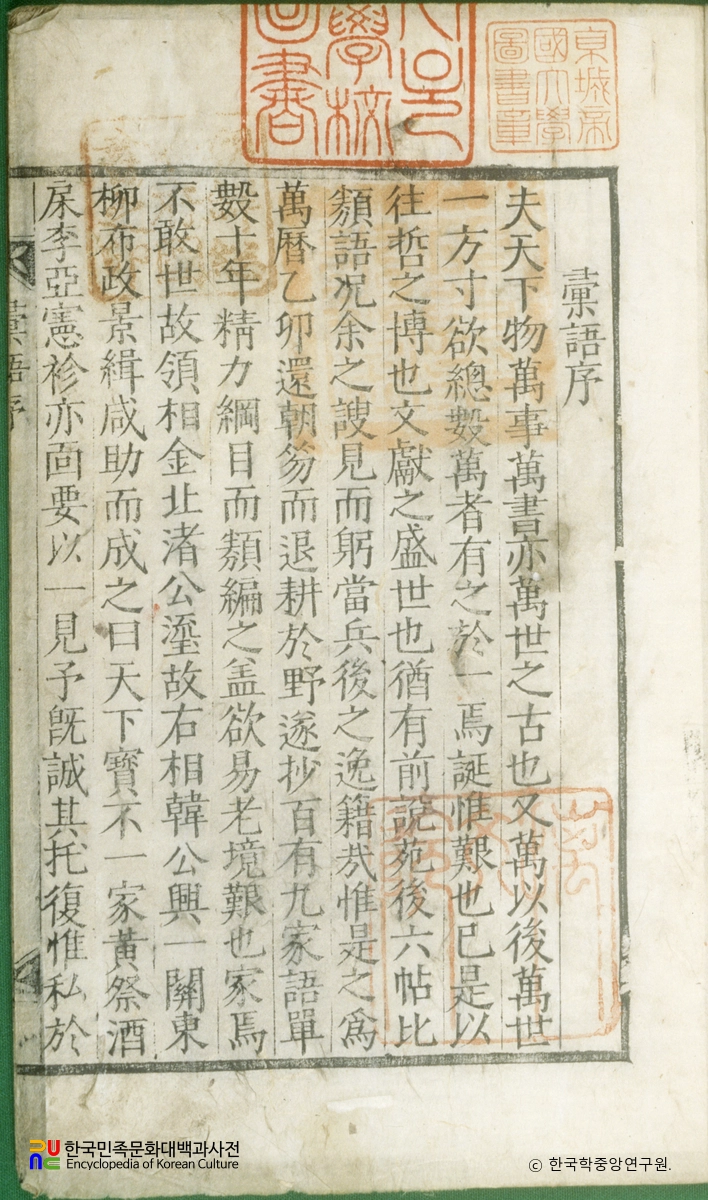 彙語序
夫天下物萬事萬書亦萬世之古也又萬以後萬世
一方寸欲總數萬者有之於一焉誕惟艱也已是以
往哲之博也文獻之盛世也猶有前說苑後六帖比
類語况余之謏見而躬當兵後之逸籍㦲惟是之爲
萬曆乙卯還朝芻而退耕於野遂抄百有九家語單
數十年精力綱目而類編之盖欲易老境艱也家焉
不敢世故領相金北渚公瑬故右相韓公興一關東
柳布政景緝咸助而成之曰天下寶不一家黃祭酒
李亞憲袗亦面要以一見予旣誠其托復惟私於
彙語序
京城帝
國大學
圖書章
學校
圖書
한국민족문화대백과사전
Encyclopedia of Korean Culture
© 한국학중앙연구원.